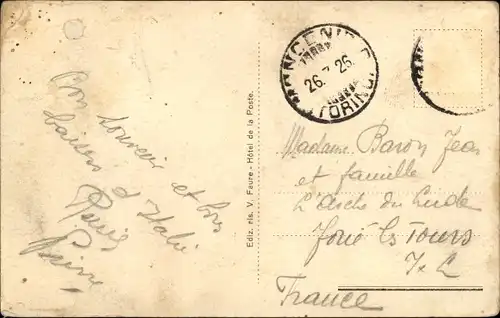 Bon Souvenir et bons
baisers d'Italie
Pierre
Ediz. ris. V. Faure - Hôtel de la Poste.
MONCENISIO
26.7.26
(TORINO)
Madame Baron Jean
et famille
L'Arche du Lude
Joué les Tours
I. L
France